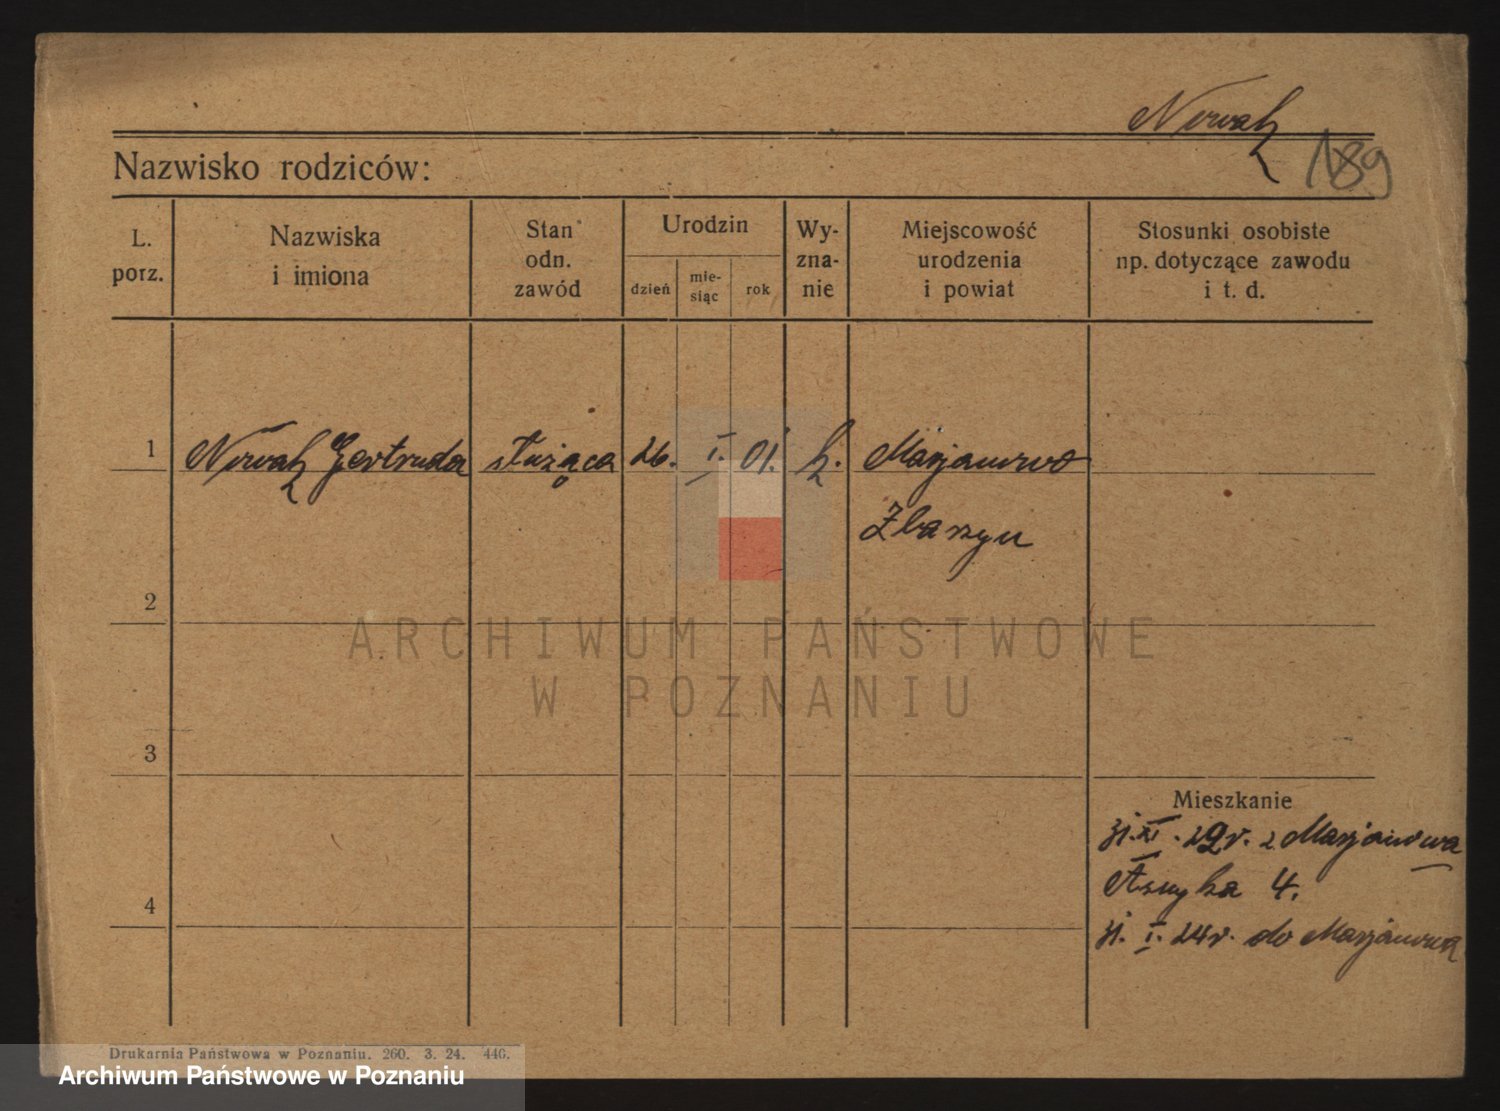 Nowak
189
Nazwisko rodziców:
L. porz.
Nazwiska i imiona
Stan odn. zawód
Urodzin
dzień
mie-siąc
rok
Wy-zna-nie
Miejscowość urodzenia i powiat
Stosunki osobiste np. dotyczące zawodu i t. d.
1
Nowak Gertruda służąca 26. I. 01. k. Marjanowo
Zbaszyn
2
ARCHIWUM PAŃSTWOWE
W POZNANIU
3
Mieszkanie
XI. 29 r. z Marjanowa
Asnyka 4.
4
I. 24 r. do Marjanowa
Drukarnia Państwowa w Poznaniu. 260. 3. 24. 440.
Archiwum Państwowe w Poznaniu